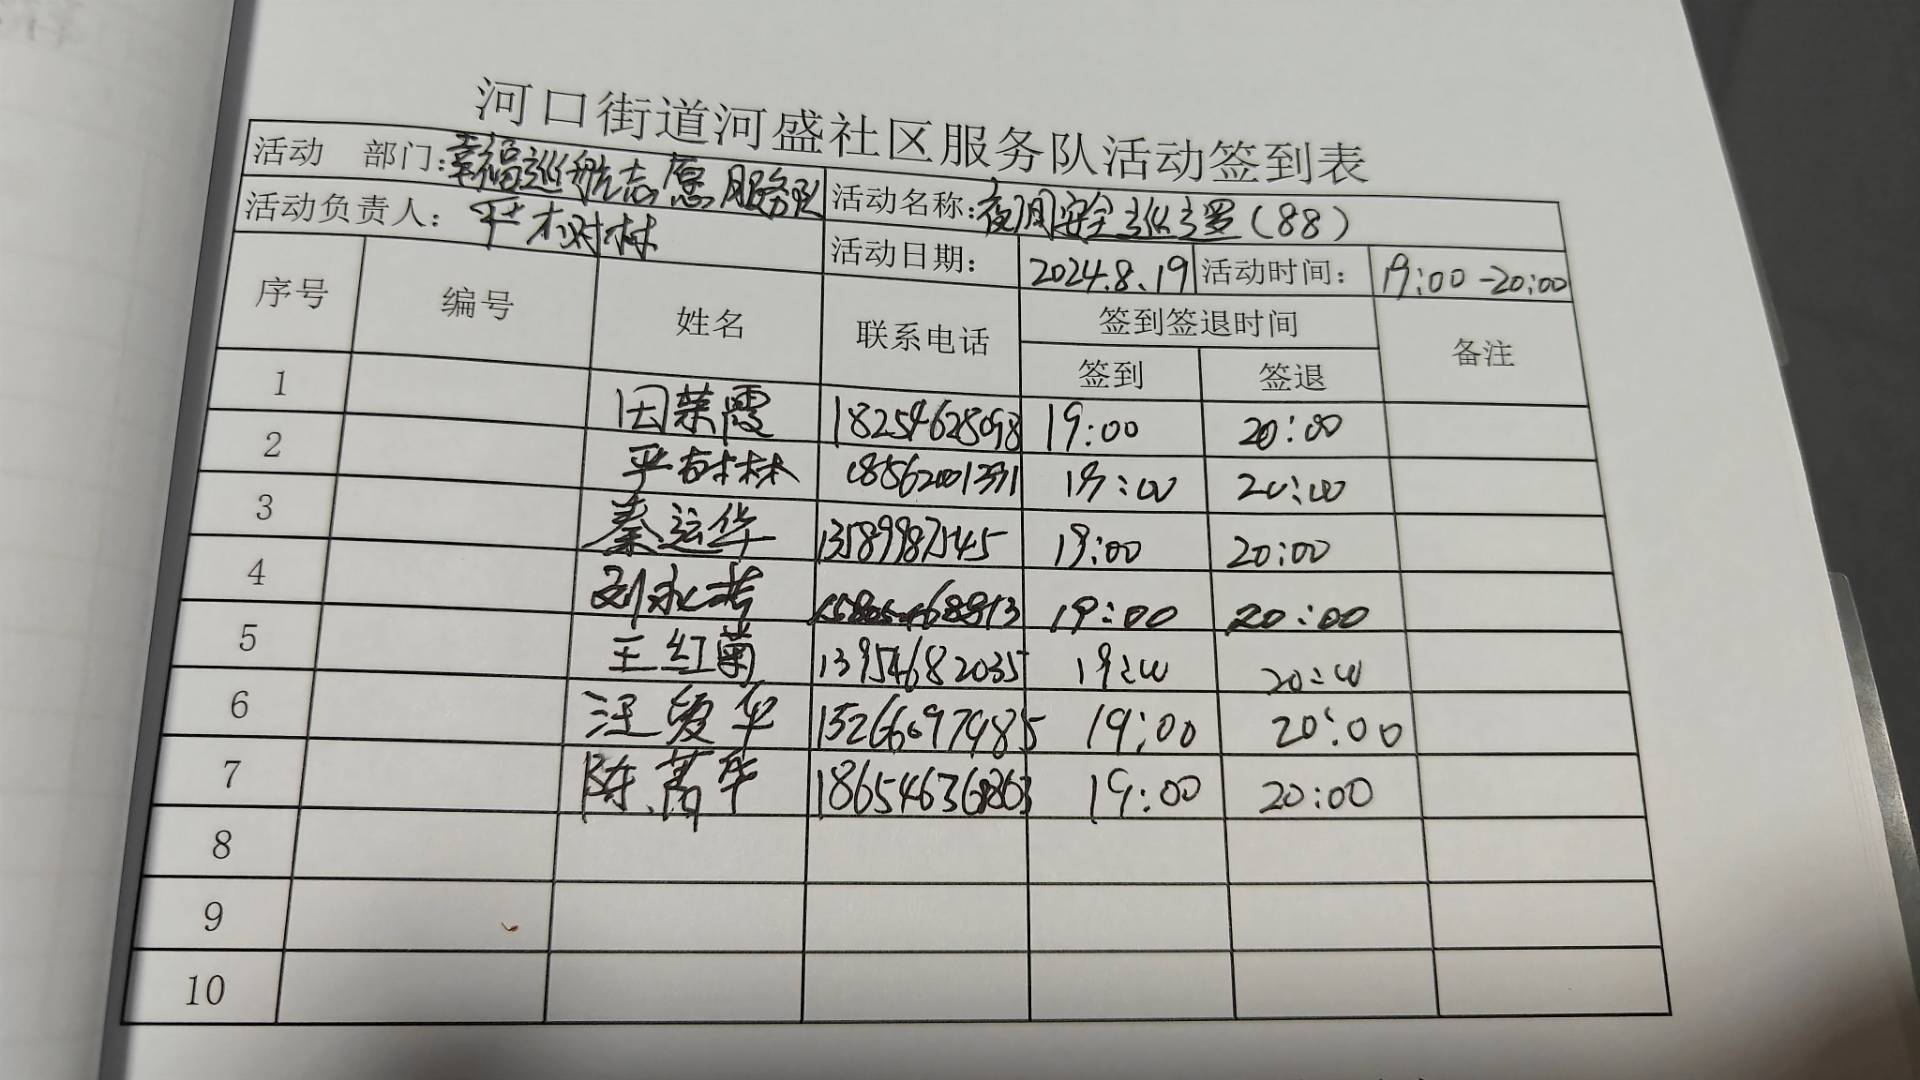 河口街道河盛社区服务队活动签到表
活动 部门:幸福巡航志愿服务队 活动名称:夜间安全巡逻(88)
活动负责人: 严树林 活动日期: 2024.8.19 活动时间: 19:00-20:00
序号 编号 姓名 联系电话 签到签退时间 备注
签到 签退
1 田荣霞 18254628098 19:00 20:00
2 严树林 19:00 20:00
3 秦运华 13589987545 19:00 20:00
4 19:00 20:00
5 王红菊 13954682035 19:00 20:00
6 汪爱华 15266097985 19:00 20:00
7 陈菁华 19:00 20:00
8
9
10